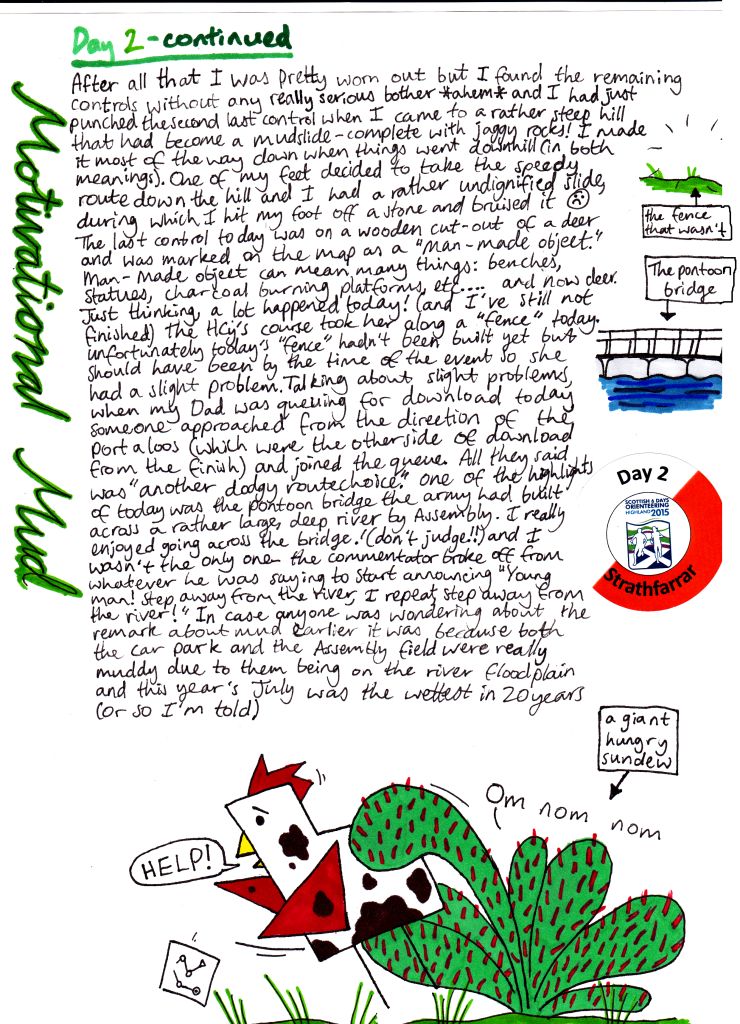 Day 2 - continued
Motivational Mud
After all that I was pretty worn out but I found the remaining
controls without any really serious bother *ahem* and I had just
punched the second last control when I came to a rather steep hill
that had become a mudslide - complete with jaggy rocks! I made
it most of the way down when things went downhill (in both
meanings). One of my feet decided to take the speedy
route down the hill and I had a rather undignified slide,
during which I hit my foot off a stone and bruised it ☹
The last control today was on a wooden cut-out of a deer
and was marked on the map as a "man-made object."
Man-made object can mean many things: benches,
statues, charcoal burning platforms, etc.... and now deer.
Just thinking, a lot happened today! (and I've still not
finished) The HCJ's course took her along a "fence" today.
unfortunately today's "fence" hadn't been built yet but
should have been by the time of the event so she
had a slight problem. Talking about slight problems,
when my Dad was queuing for download today
someone approached from the direction of the
portaloos (which were the other side of download
from the finish) and joined the queue. All they said
was "another dodgy routechoice." One of the highlights
of today was the pontoon bridge the army had built
across a rather large, deep river by Assembly. I really
enjoyed going across the bridge. (don't judge!!) and I
wasn't the only one - the commentator broke off from
whatever he was saying to start announcing "Young
man! Step away from the river, I repeat, step away from
the river!" In case anyone was wondering about the
remark about mud earlier it was because both
the car park and the Assembly field were really
muddy due to them being on the river floodplain
and this year's July was the wettest in 20 years
(or so I'm told)
the fence
that wasn't
The pontoon
bridge
Day 2
SCOTTISH 6 DAYS
ORIENTEERING
HIGHLAND 2015
Strathfarrar
a giant
hungry
sundew
Om nom nom
HELP!